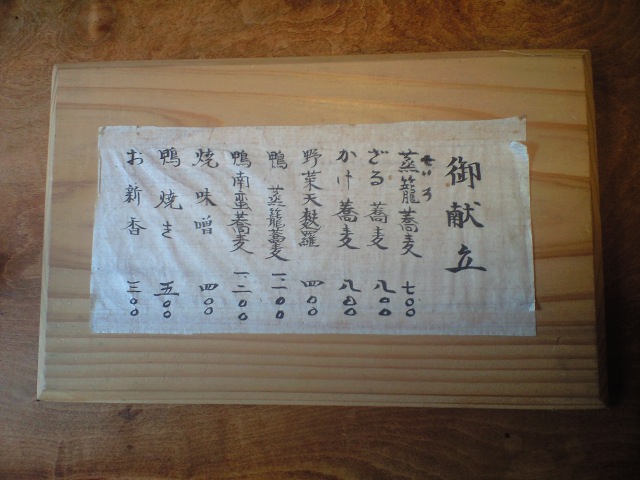 御献立
せいろ
蒸籠蕎麦 七〇〇
ざる蕎麦 八〇〇
かけ蕎麦 八〇〇
野菜天麩羅 四〇〇
鴨蒸籠蕎麦 一二〇〇
鴨南蛮蕎麦 一二〇〇
焼味噌 四〇〇
鴨焼き 五〇〇
お新香 三〇〇